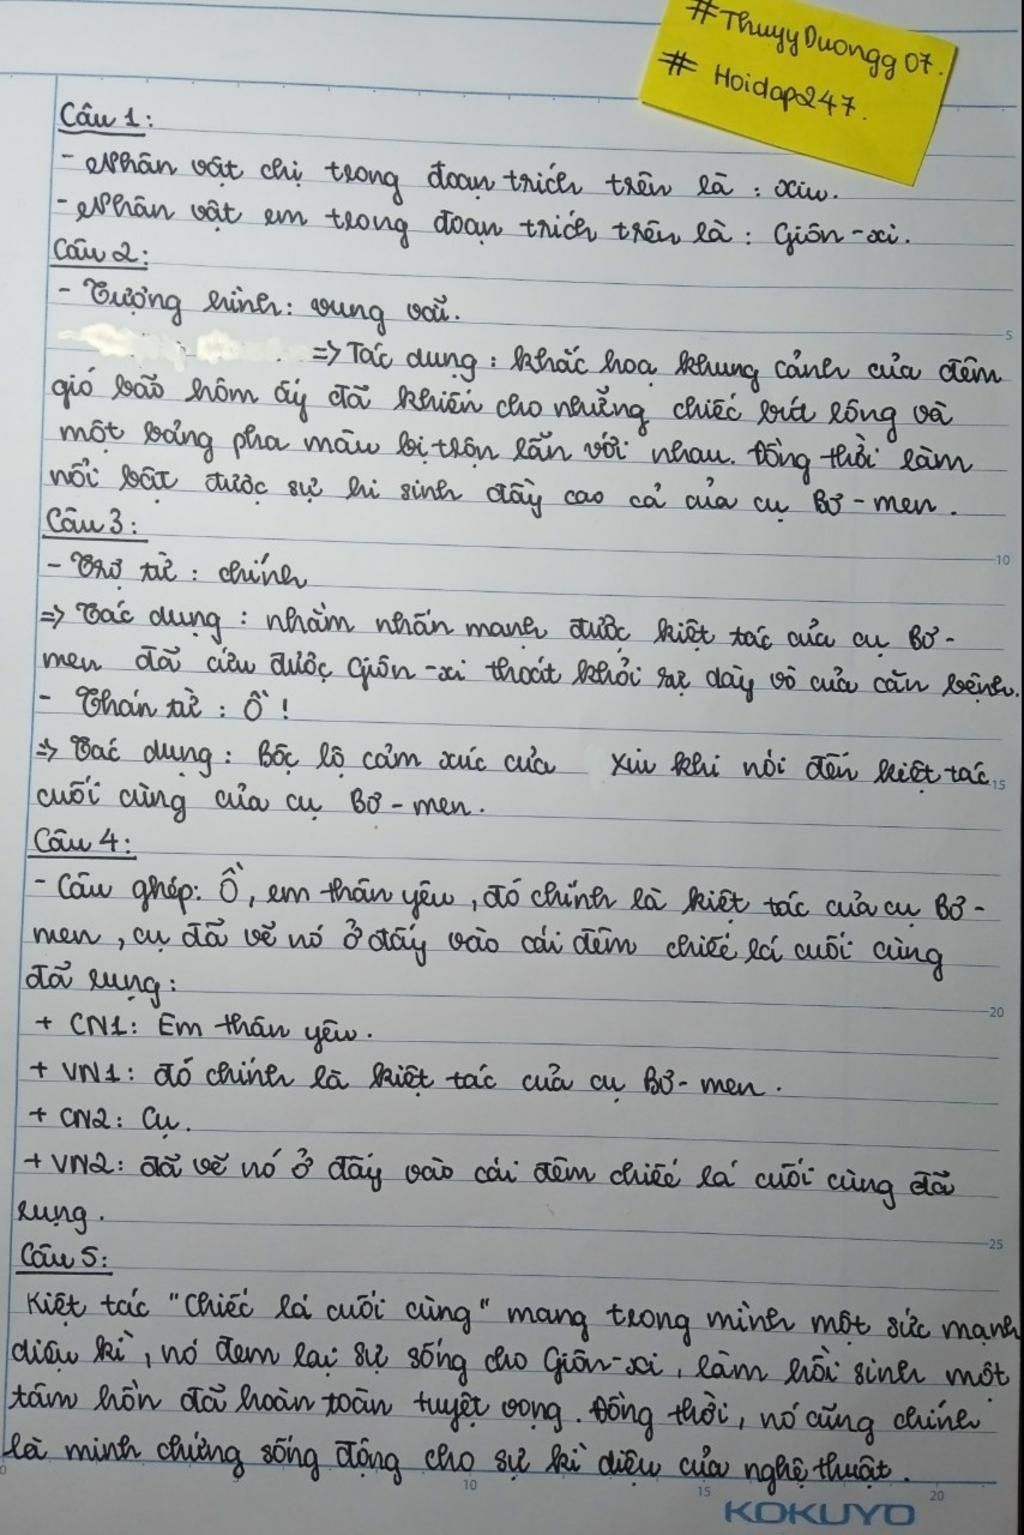 #ThuyyDuongg07.
# Hoidap247.
Câu 1:
- Nhân vật chị trong đoạn trích trên là : Xiu.
- Nhân vật em trong đoạn trích trên là : Giôn-xi.
Câu 2:
- Tượng hình: vung vãi.
=> Tác dụng : khắc hoạ khung cảnh của đêm
gió bão hôm ấy đã khiến cho những chiếc bút lông và
một bảng pha màu bị trộn lẫn với nhau. Đồng thời làm
nổi bật được sự hi sinh đầy cao cả của cụ Bơ-men.
Câu 3:
- Trợ từ : chính
=> Tác dụng : nhằm nhấn mạnh được kiệt tác của cụ Bơ-
men đã cứu được Giôn-xi thoát khỏi sự dày vò của căn bệnh.
- Thán từ : Ồ !
=> Tác dụng : Bộc lộ cảm xúc của Xiu khi nói đến kiệt tác
cuối cùng của cụ Bơ-men.
Câu 4:
- Câu ghép: Ồ, em thân yêu, đó chính là kiệt tác của cụ Bơ-
men, cụ đã vẽ nó ở đấy vào cái đêm chiếc lá cuối cùng
đã rụng:
+ CN1: Em thân yêu.
+ VN1: đó chính là kiệt tác của cụ Bơ-men.
+ CN2: Cụ.
+ VN2: đã vẽ nó ở đấy vào cái đêm chiếc lá cuối cùng đã
rụng.
Câu 5:
Kiệt tác "Chiếc lá cuối cùng" mang trong mình một sức mạnh
diệu kì, nó đem lại sự sống cho Giôn-xi, làm hồi sinh một
tâm hồn đã hoàn toàn tuyệt vọng. Đồng thời, nó cũng chính
là minh chứng sống động cho sự kì diệu của nghệ thuật.
5
10
15
20
25
10 15 20
KOKUYO